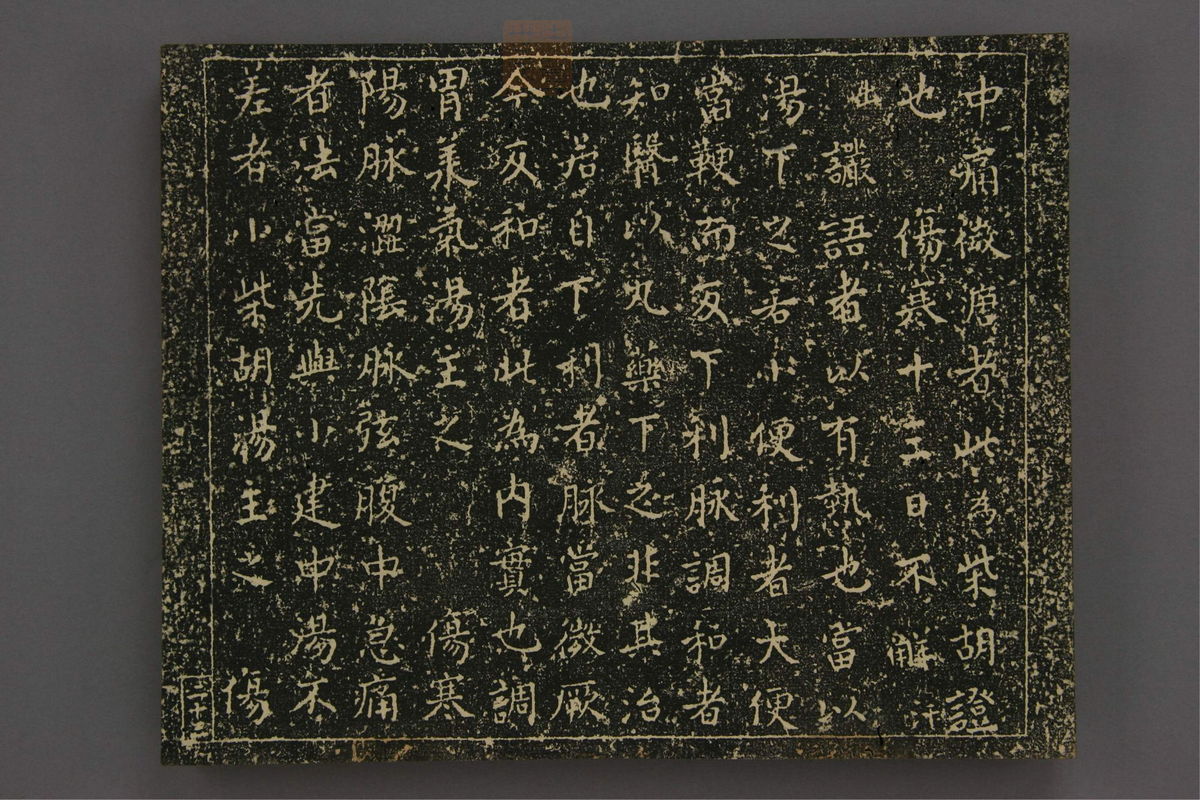 中痛微溏者此為柴胡證
也 傷寒十三日不解
讝語者以有熱也當以
湯下之若小便利者大便
當鞕而反下利脉調和者
知醫以丸藥下之非其治
也若自下利者脉當微厥
今反和者此為内實也調
胃承氣湯主之 傷寒
陽脉澀陰脉弦腹中急痛
者法當先與小建中湯不
差者小柴胡湯主之 傷